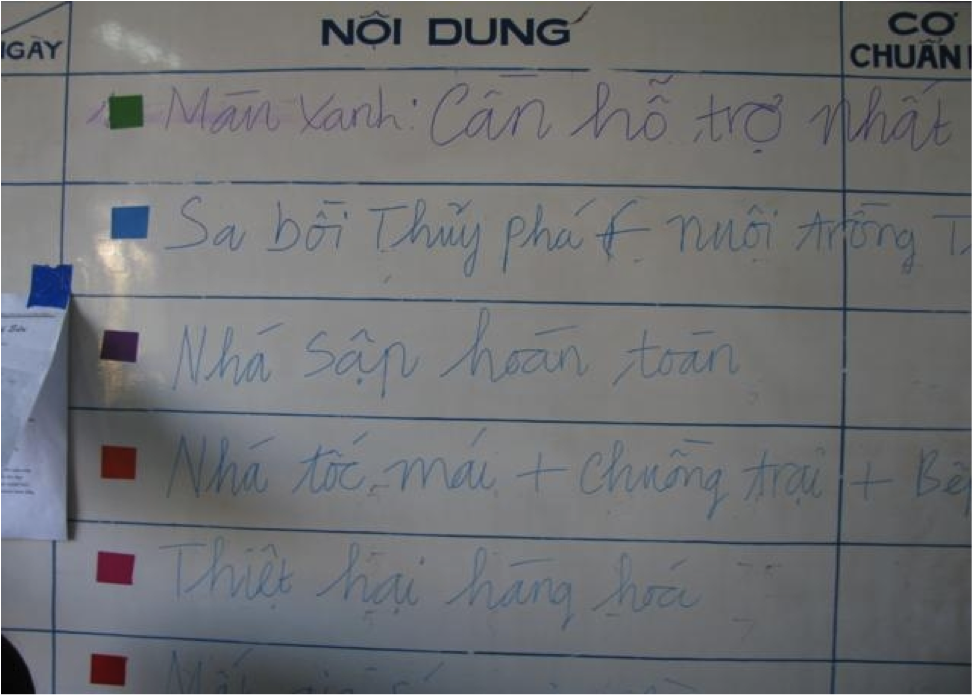 NGÀY
NỘI DUNG
CƠ
CHUẨN
Màn xanh: Cần hỗ trợ nhất
Sa bồi Thủy phá + nuôi trồng
Nhà sập hoàn toàn
Nhà tốc mái + chuồng trại +
Thiệt hại hàng hoá